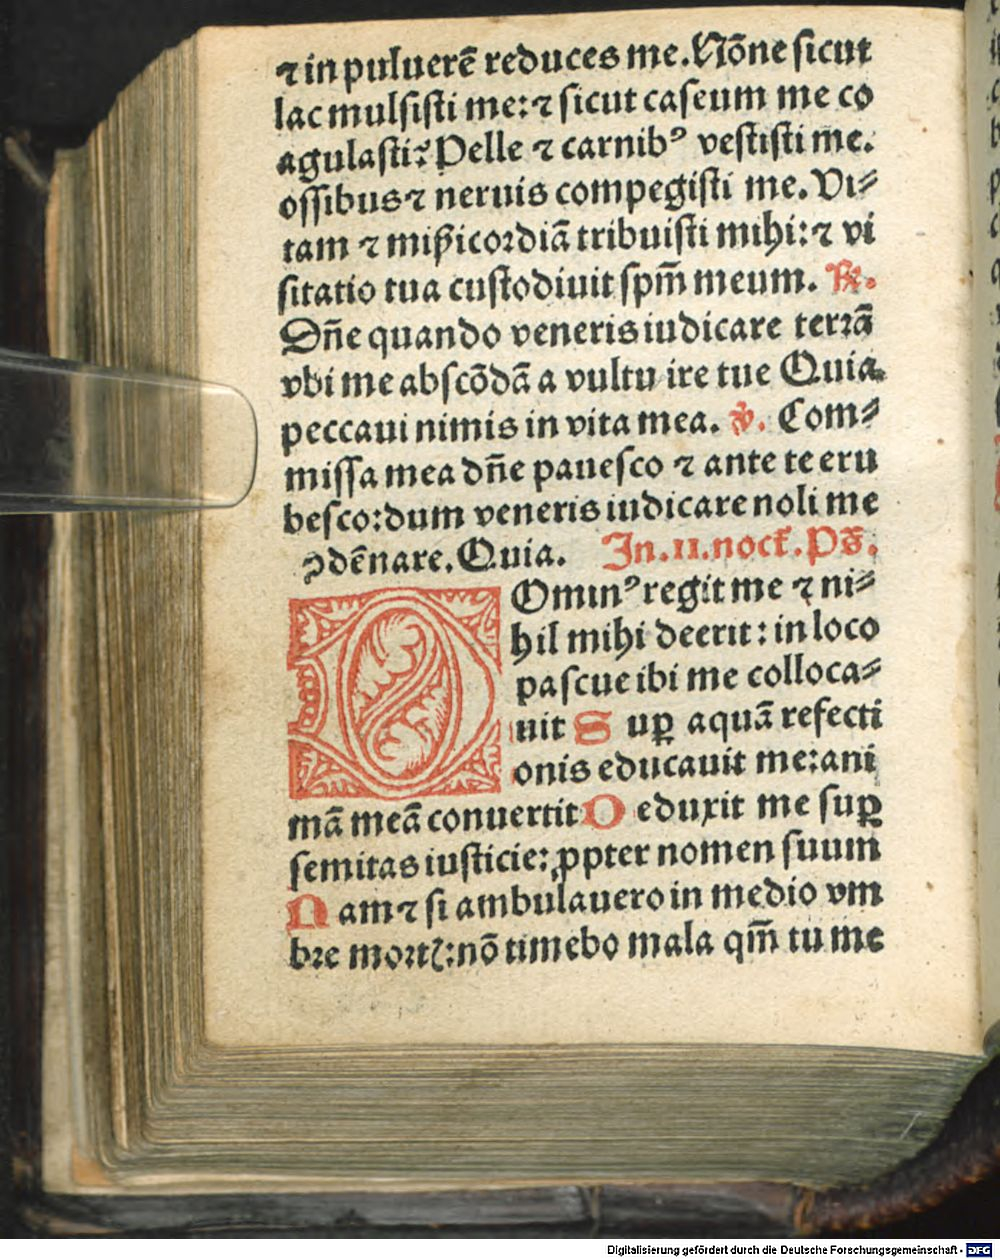 ⁊ in puluerē reduces me. Nōne sicut
lac mulsisti me: ⁊ sicut caseum me co
agulasti? Pelle ⁊ carnibꝰ vestisti me.
ossibus ⁊ neruis compegisti me. Vi⸗
tam ⁊ mip̄icordiā tribuisti mihi: ⁊ vi
sitatio tua custodiuit spm̄ meum. ℟.
Dn̄e quando veneris iudicare terrā
vbi me abscōdā a vultu ire tue Quia.
peccaui nimis in vita mea. ℣. Com⸗
missa mea dn̄e pauesco ⁊ ante te eru
besco: dum veneris iudicare noli me
ꝯdēnare. Quia. In. II. noct̄. Pš.
DOminꝰ regit me ⁊ ni⸗
hil mihi deerit: in loco
pascue ibi me colloca⸗
uit Suꝑ aquā refecti
onis educauit me: ani
mā meā conuertit Deduxit me suꝑ
semitas iusticie: ꝓpter nomen suum
Nam ⁊ si ambulauero in medio vm
bre mortꝭ: nō timebo mala qm̄ tu me
Digitalisierung gefördert durch die Deutsche Forschungsgemeinschaft - DFG